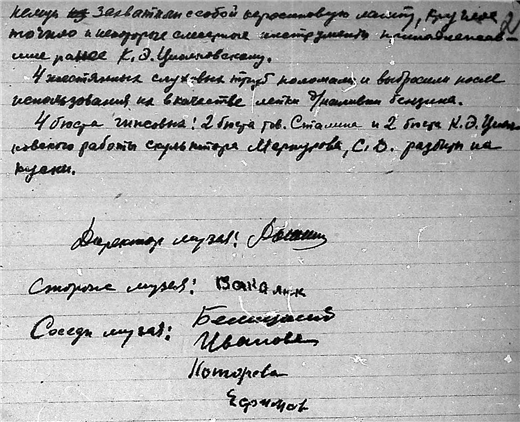 немцы захватили с собой керосиновую лампу, круглое
точило и некоторые слесарные инструменты принадлежав-
шие ранее К. Э. Циолковскому.
4 жестяных слуховых труб поломали и выбросили после
использования их в качестве лейки д/наливки бензина.
4 бюста гипсовых: 2 бюста тов. Сталина и 2 бюста К. Э. Циол-
ковского работы скульптора Меркурова, С. Д. разбиты на
куски.
Директор музея:
Сторож музея:
Соседи музея:
Иванова
Которева
Ефимов